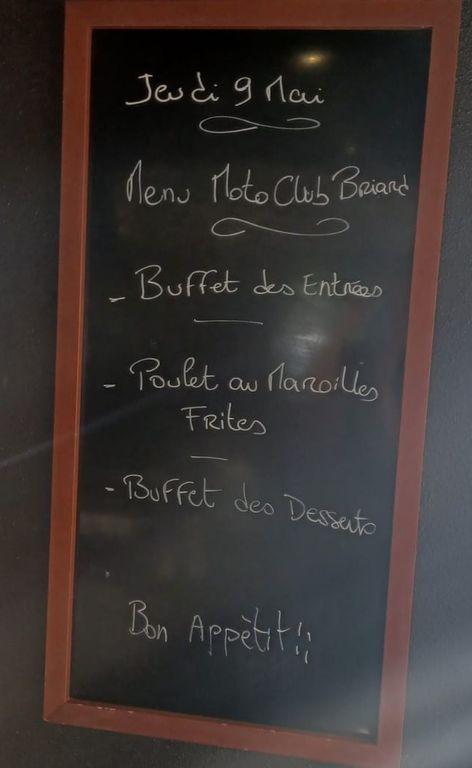 Jeudi 9 Mai
Menu Moto Club Briard
- Buffet des Entrées
- Poulet au Maroilles
Frites
- Buffet des Desserts
Bon Appètit !!